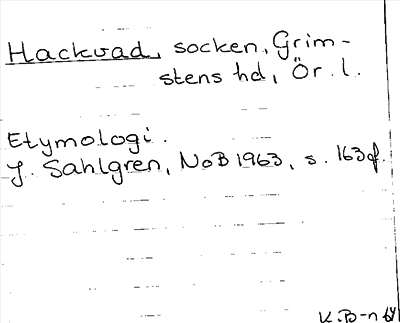 Hackvad, socken, Grim-
stens hd, Ör. l.
Etymologi.
J. Sahlgren, NoB 1963, s. 163 f.
K.B-n 64